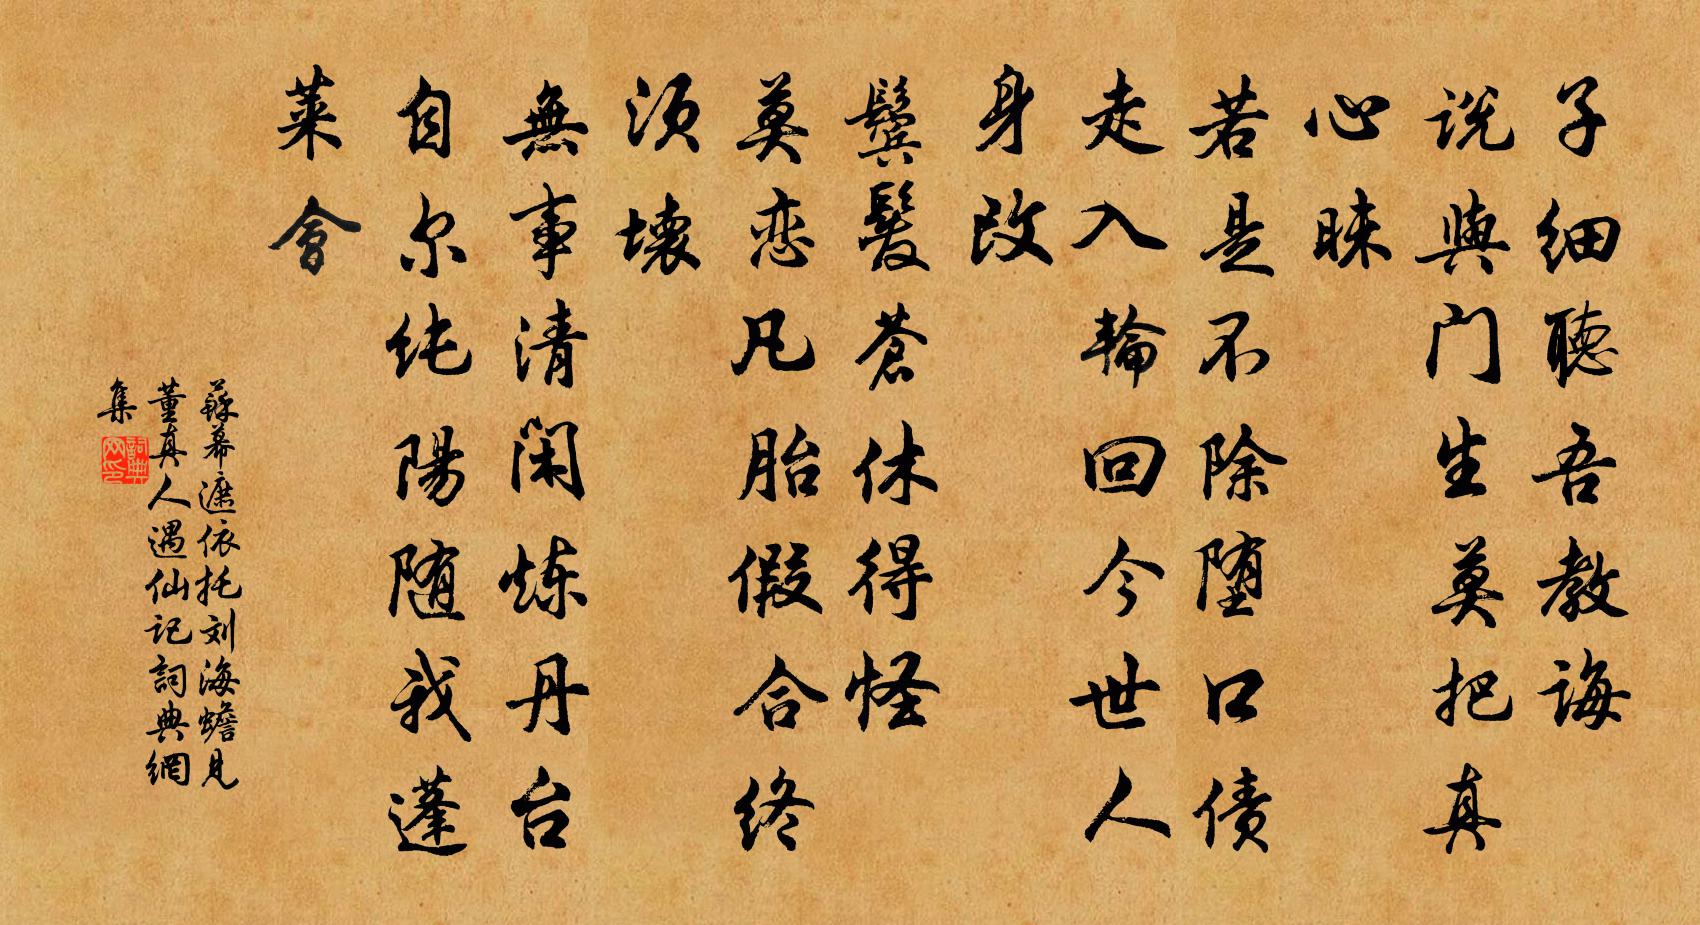 子細聽吾教誨
説與门生莫把真
心昧
若是不除堕口债
走入輪回今世人
身改
鬓髮蒼休得怪
莫恋凡胎假合终
须壞
無事清闲炼丹台
自尔纯陽随我蓬
莱會
蘇幕遮依托刘海蟾見
董真人遇仙记詞典網
集